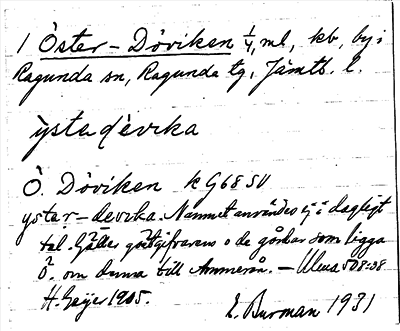 1 Öster-Döviken 1/4 ml, kb, by i
Ragunda sn, Ragunda tg, Jämtl. l.
ÿsta dèvika
Ö. Döviken k G68 SV
ystar-devika. Namnet användes ej i dagligt
tal. Gäller gästgifvaren o de gårdar som ligga
Ö. om denna till Ammerån. — Ulma 508:08
H. Geijer 1905.
E. Burman 1931